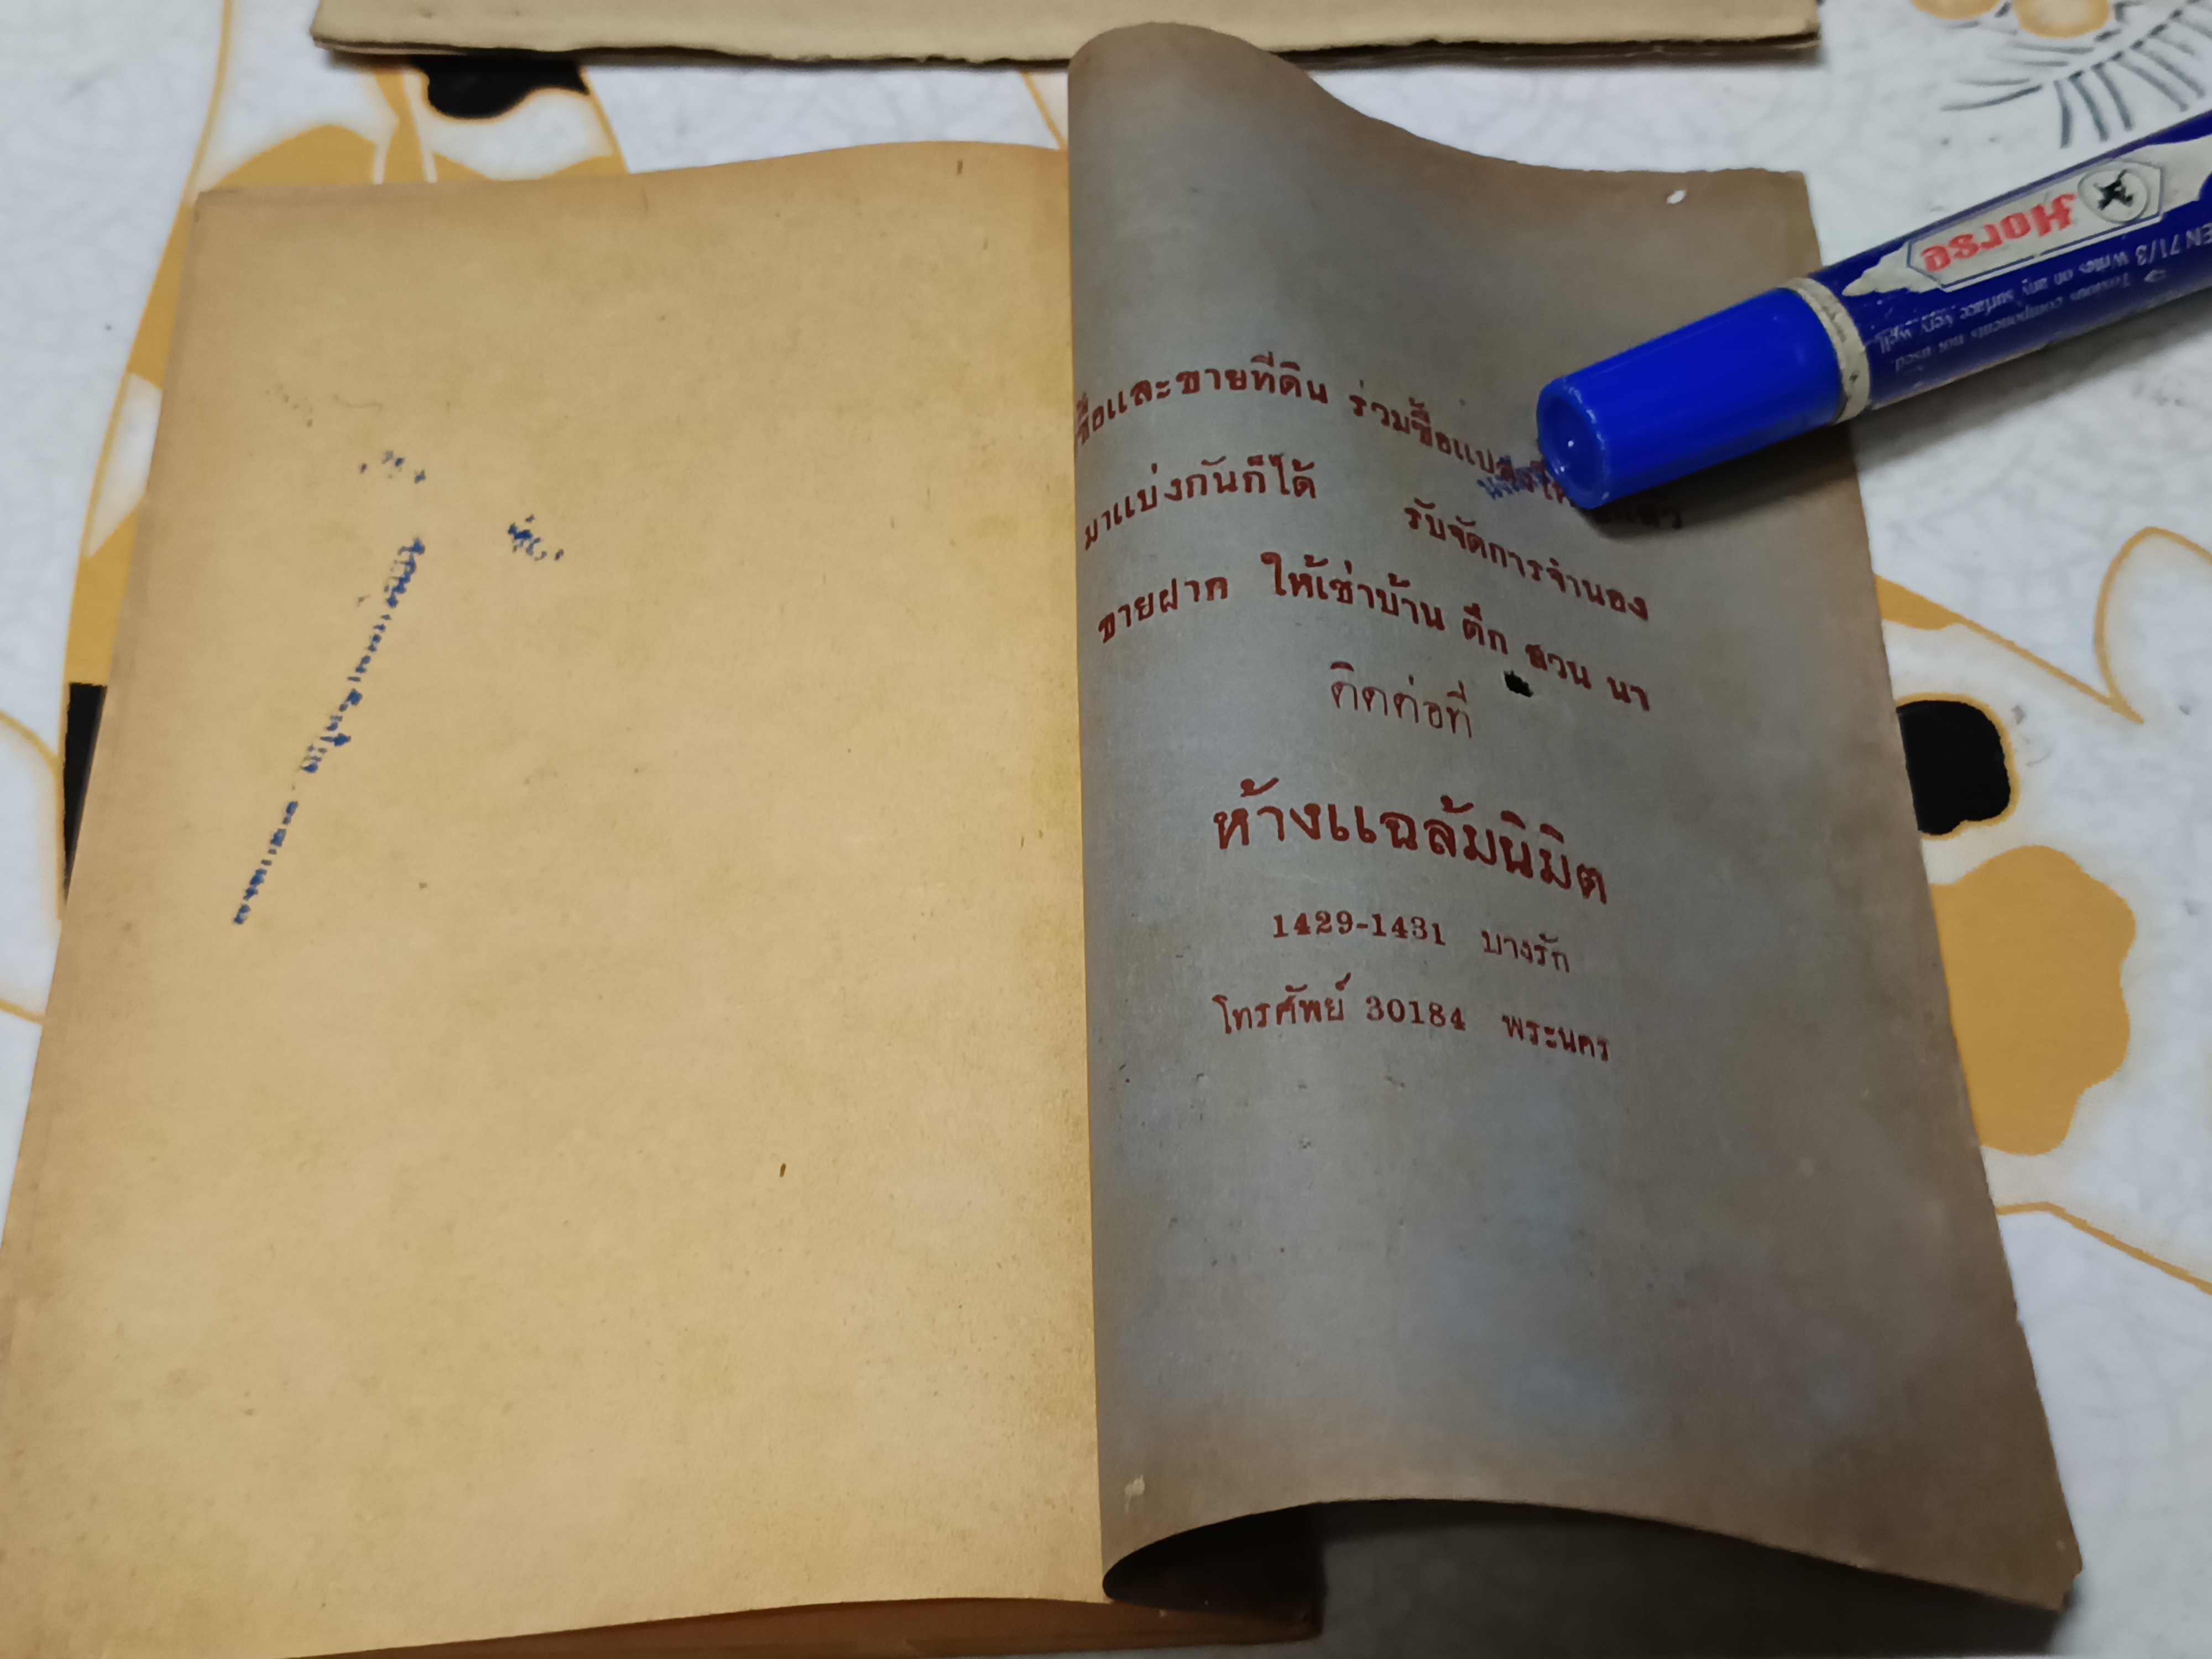 ซื้อและขายที่ดิน ร่วมซื้อแปลงใหญ่แล้ว
มาแบ่งกันก็ได้ รับจัดการจำนอง
ขายฝาก ให้เช่าบ้าน ตึก สวน นา
ติดต่อที่
ห้างแฉล้มนิมิต
1429-1431 บางรัก
โทรศัพย์ 30184 พระนคร
Horse
EN 71/3 Writes on any surface very well
Toxious components not used